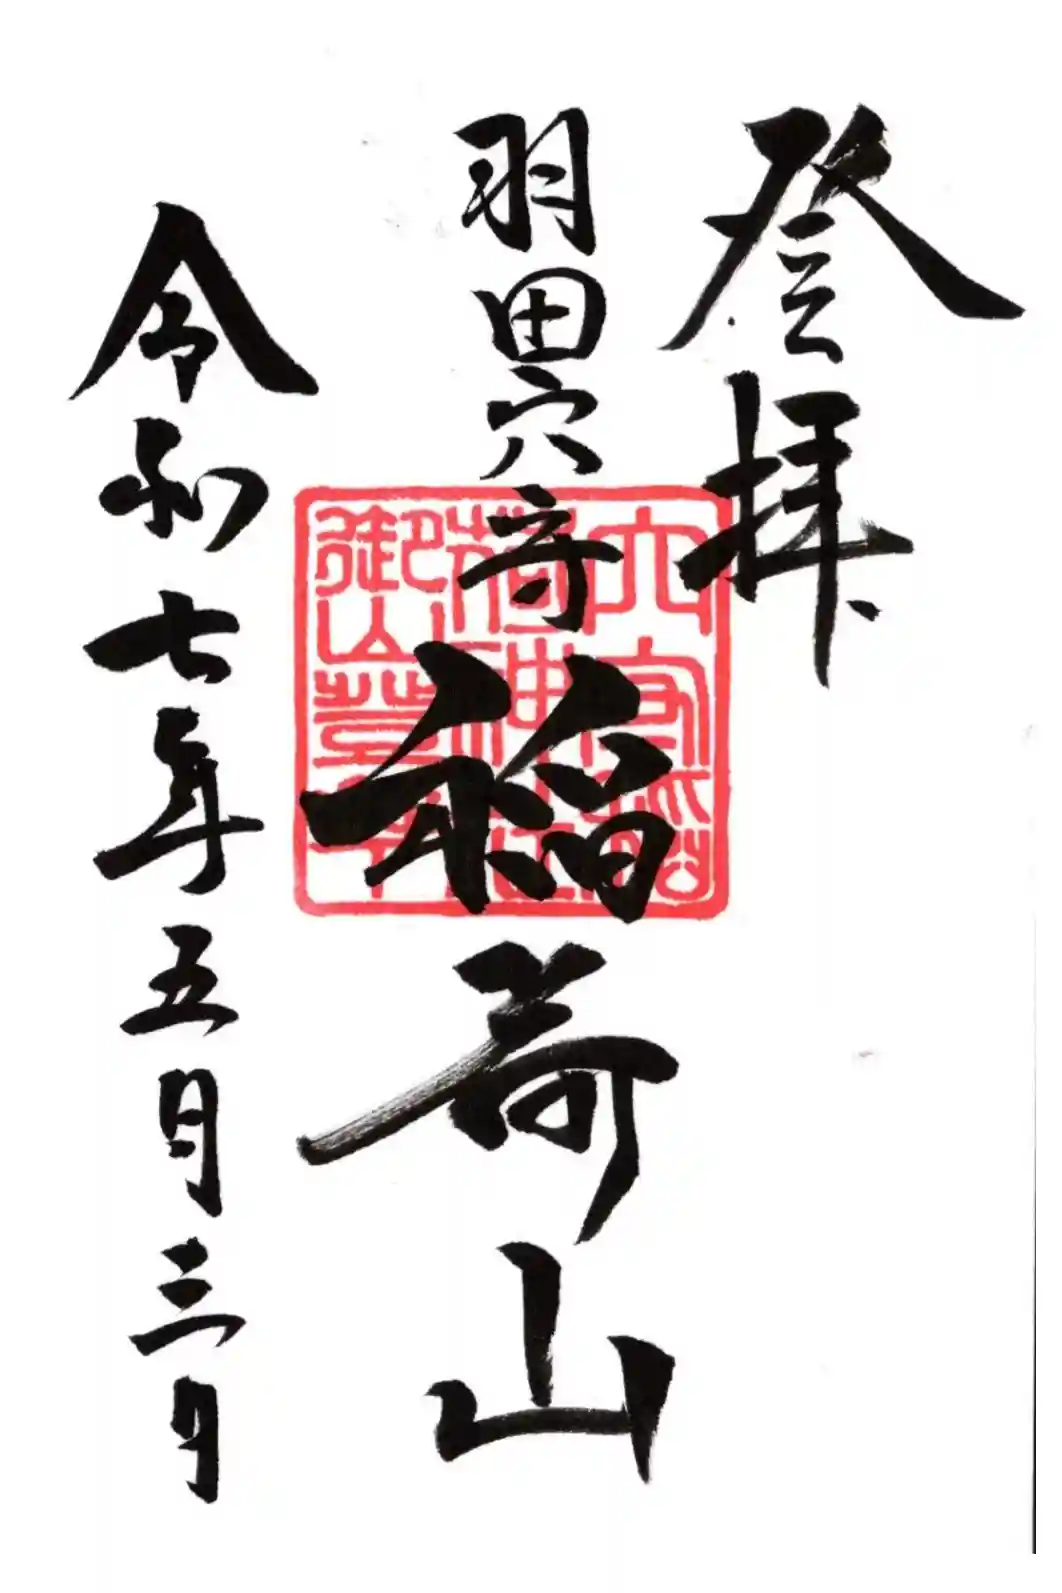 登拝
羽田穴守稲荷山
令和七年五月三日
穴守稲
荷神社
御山